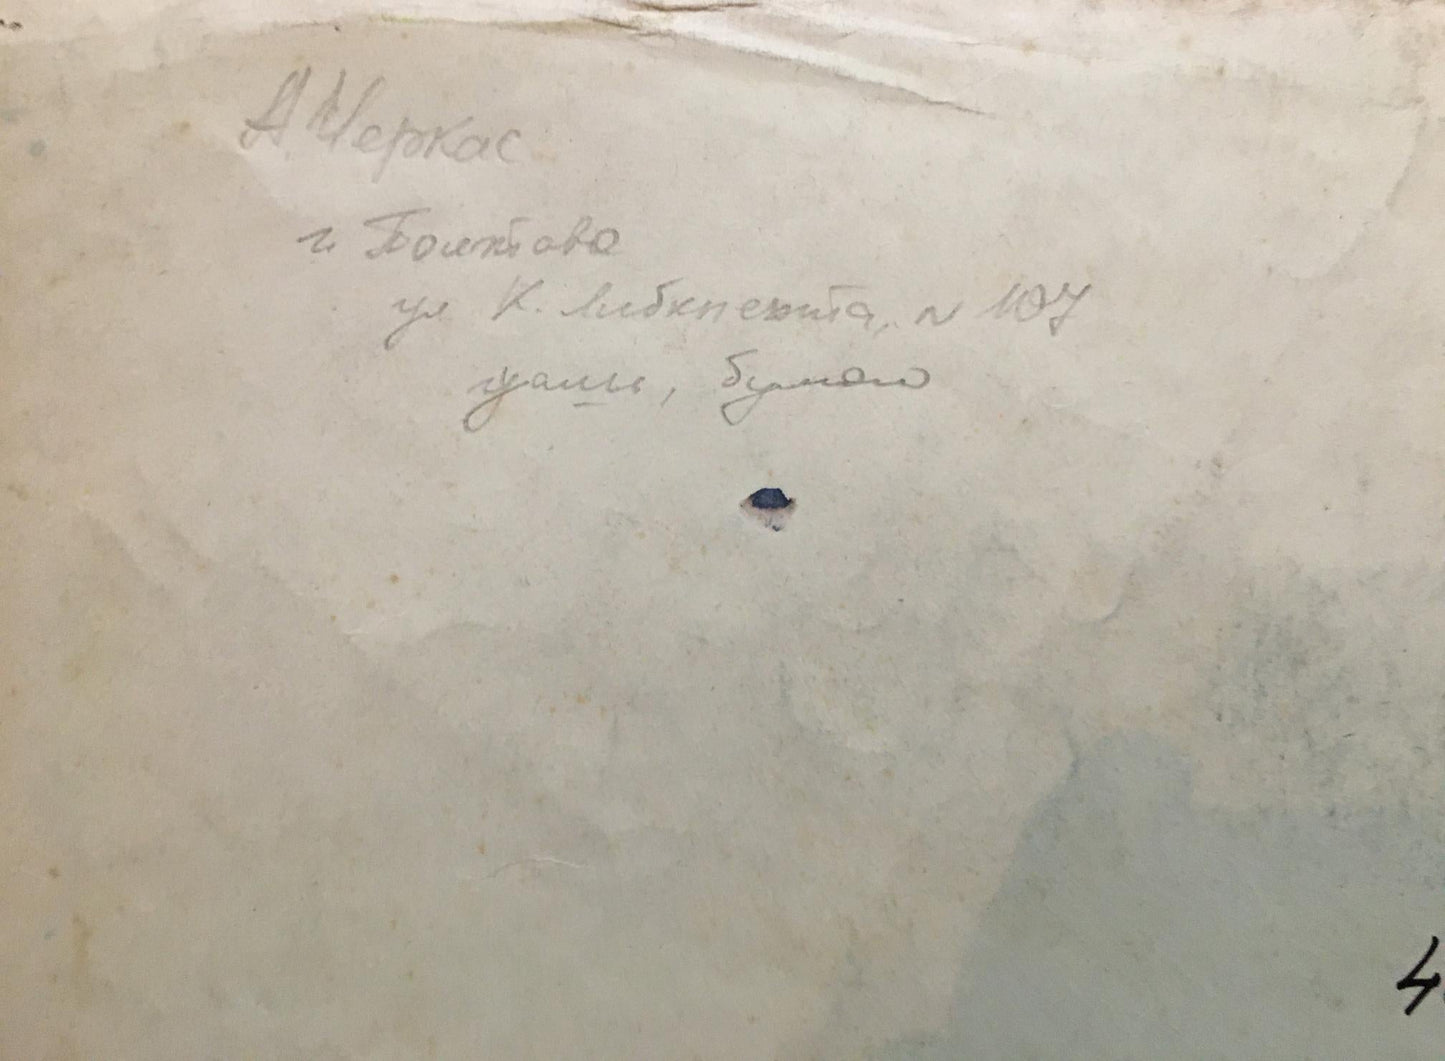 А. Черкас
г. Полтава
ул К. Либкнехта, N 107
гуашь, бумага
4